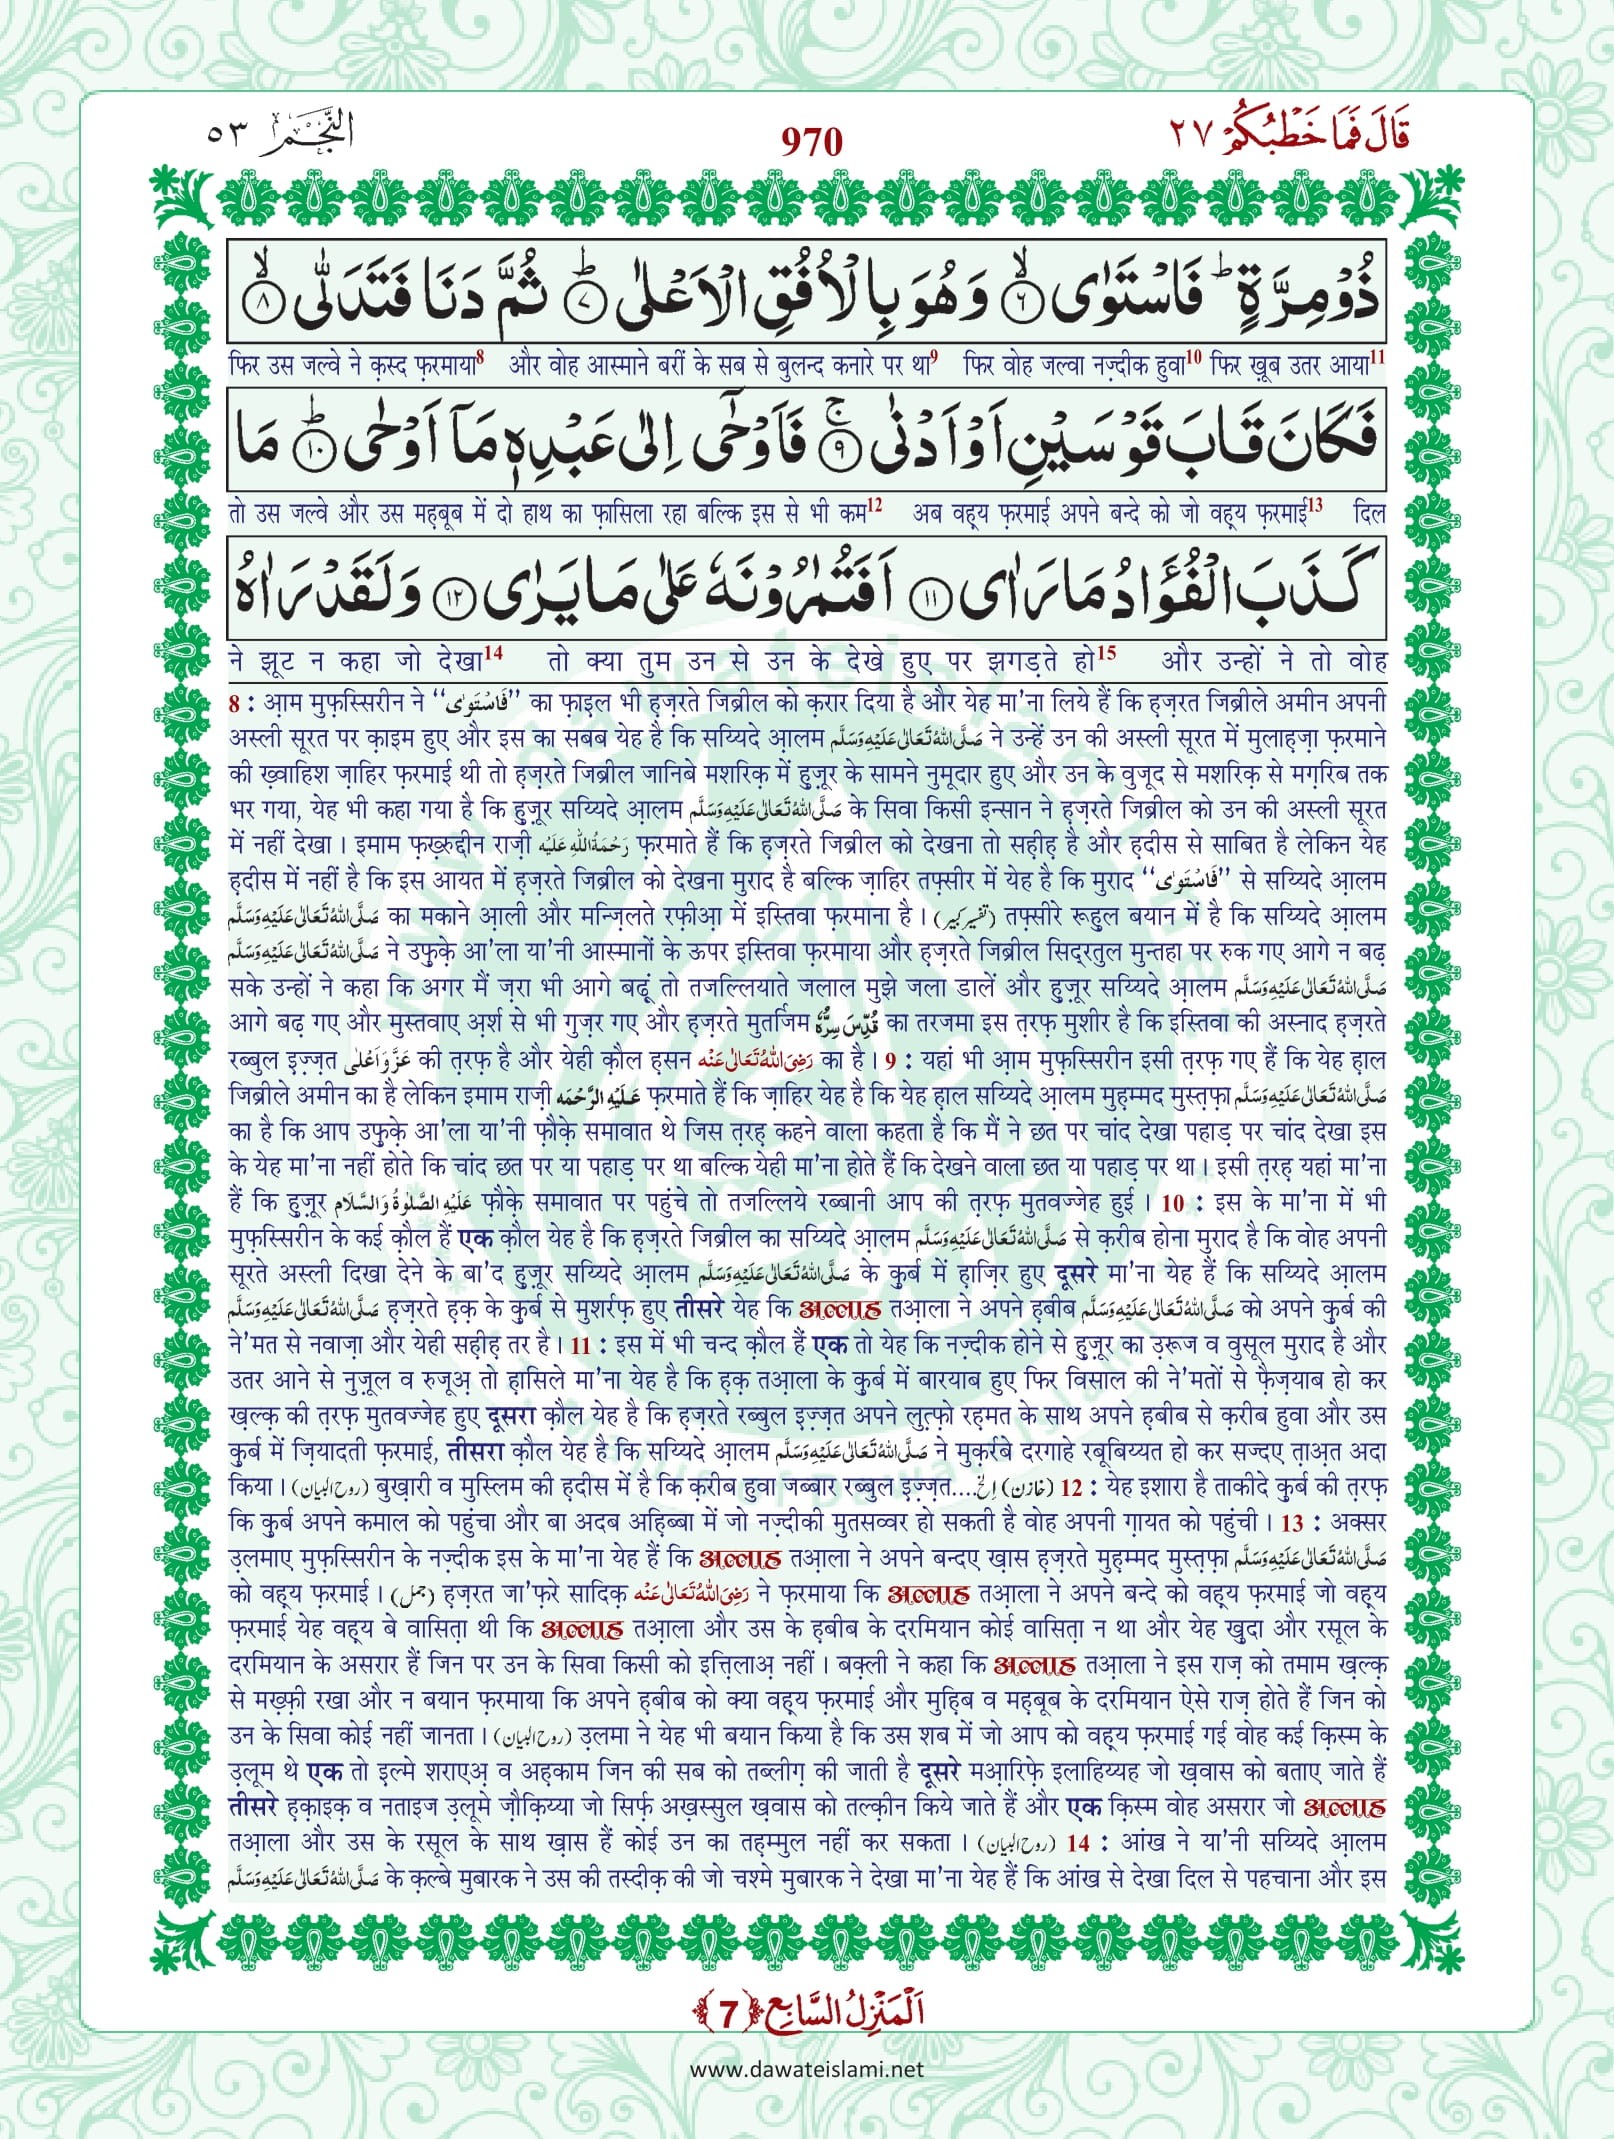 النَّجْم ٥٣
970
قَالَ فَمَا خَطْبُكُمْ ٢٧
ذُوْ مِرَّةٍ ؕ فَاسْتَوٰى ۙ﴿٦﴾ وَ هُوَ بِالْاُفُقِ الْاَعْلٰى ؕ﴿٧﴾ ثُمَّ دَنَا فَتَدَلّٰى ۙ﴿٨﴾
फिर उस जल्वे ने क़स्द फ़रमाया8 और वोह आस्माने बरीं के सब से बुलन्द कनारे पर था9 फिर वोह जल्वा नज़्दीक हुवा10 फिर ख़ूब उतर आया11
فَكَانَ قَابَ قَوْسَيْنِ اَوْ اَدْنٰى ۚ﴿٩﴾ فَاَوْحٰۤى اِلٰى عَبْدِهٖ مَاۤ اَوْحٰى ؕ﴿١٠﴾ مَا
तो उस जल्वे और उस मह़बूब में दो हाथ का फ़ासिला रहा बल्कि इस से भी कम12 अब वह़्य फ़रमाई अपने बन्दे को जो वह़्य फ़रमाई13 दिल
كَذَبَ الْفُؤَادُ مَا رَاٰى ﴿١١﴾ اَفَتُمٰرُوْنَهٗ عَلٰى مَا يَرٰى ﴿١٢﴾ وَ لَقَدْ رَاٰهُ
ने झूट न कहा जो देखा14 तो क्या तुम उन से उन के देखे हुए पर झगड़ते हो15 और उन्हों ने तो वोह
8 : आ़म मुफ़स्सिरीन ने ‘‘فَاسْتَوٰى’’ का फ़ाइ़ल भी ह़ज़रते जिब्रील को क़रार दिया है और येह मा'ना लिये हैं कि ह़ज़रत जिब्रीले अमीन अपनी
अस्ली सूरत पर क़ाइम हुए और इस का सबब येह है कि सय्यिदे आ़लम صَلَّى اللّٰهُ تَعَالٰى عَلَيْهِ وَسَلَّم ने उन्हें उन की अस्ली सूरत में मुलाह़ज़ा फ़रमाने
की ख़्वाहिश ज़ाहिर फ़रमाई थी तो ह़ज़रते जिब्रील जानिबे मशरिक़ में हु़ज़ूर के सामने नुमूदार हुए और उन के वुजूद से मशरिक़ से मग़रिब तक
भर गया, येह भी कहा गया है कि हु़ज़ूर सय्यिदे आ़लम صَلَّى اللّٰهُ تَعَالٰى عَلَيْهِ وَسَلَّم के सिवा किसी इन्सान ने ह़ज़रते जिब्रील को उन की अस्ली सूरत
में नहीं देखा । इमाम फ़ख़्रुद्दीन राज़ी رَحْمَةُ اللّٰهِ عَلَيْه फ़रमाते हैं कि ह़ज़रते जिब्रील को देखना तो सह़ीह़ है और ह़दीस से साबित है लेकिन येह
ह़दीस में नहीं है कि इस आयत में ह़ज़रते जिब्रील को देखना मुराद है बल्कि ज़ाहिर तफ़्सीर में येह है कि मुराद ‘‘فَاسْتَوٰى’’ से सय्यिदे आ़लम
صَلَّى اللّٰهُ تَعَالٰى عَلَيْهِ وَسَلَّم का मकाने आ़ली और मन्ज़िलते रफ़ीआ़ में इस्तिवा फ़रमाना है । (تفسیر کبیر) तफ़्सीरे रूहु़ल बयान में है कि सय्यिदे आ़लम
صَلَّى اللّٰهُ تَعَالٰى عَلَيْهِ وَسَلَّم ने उफ़ुक़े आ'ला या'नी आस्मानों के ऊपर इस्तिवा फ़रमाया और ह़ज़रते जिब्रील सिद्रतुल मुन्तहा पर रुक गए आगे न बढ़
सके उन्हों ने कहा कि अगर मैं ज़रा भी आगे बढ़ूं तो तजल्लियाते जलाल मुझे जला डालें और हु़ज़ूर सय्यिदे आ़लम صَلَّى اللّٰهُ تَعَالٰى عَلَيْهِ وَسَلَّم
आगे बढ़ गए और मुस्तवाए अ़र्श से भी गुज़र गए और ह़ज़रते मुतर्जिम قُدِّسَ سِرُّهٗ का तरजमा इस त़रफ़ मुशीर है कि इस्तिवा की अस्नाद ह़ज़रते
रब्बुल इ़ज़्ज़त عَزَّ وَ اَعْلٰى की त़रफ़ है और येही क़ौल ह़सन رَضِىَ اللّٰهُ تَعَالٰى عَنْه का है । 9 : यहां भी आ़म मुफ़स्सिरीन इसी त़रफ़ गए हैं कि येह ह़ाल
जिब्रीले अमीन का है लेकिन इमाम राज़ी عَلَيْهِ الرَّحْمَه फ़रमाते हैं कि ज़ाहिर येह है कि येह ह़ाल सय्यिदे आ़लम मुह़म्मद मुस्त़फ़ा صَلَّى اللّٰهُ تَعَالٰى عَلَيْهِ وَسَلَّم
का है कि आप उफ़ुक़े आ'ला या'नी फ़ौक़े समावात थे जिस त़रह़ कहने वाला कहता है कि मैं ने छत पर चांद देखा पहाड़ पर चांद देखा इस
के येह मा'ना नहीं होते कि चांद छत पर या पहाड़ पर था बल्कि येही मा'ना होते हैं कि देखने वाला छत या पहाड़ पर था । इसी त़रह़ यहां मा'ना
हैं कि हु़ज़ूर عَلَيْهِ الصَّلٰوةُ وَ السَّلَام फ़ौक़े समावात पर पहुंचे तो तजल्लिये रब्बानी आप की त़रफ़ मुतवज्जेह हुई । 10 : इस के मा'ना में भी
मुफ़स्सिरीन के कई क़ौल हैं एक क़ौल येह है कि ह़ज़रते जिब्रील का सय्यिदे आ़लम صَلَّى اللّٰهُ تَعَالٰى عَلَيْهِ وَسَلَّم से क़रीब होना मुराद है कि वोह अपनी
सूरते अस्ली दिखा देने के बा'द हु़ज़ूर सय्यिदे आ़लम صَلَّى اللّٰهُ تَعَالٰى عَلَيْهِ وَسَلَّم के क़ुर्ब में ह़ाज़िर हुए दूसरे मा'ना येह हैं कि सय्यिदे आ़लम
صَلَّى اللّٰهُ تَعَالٰى عَلَيْهِ وَسَلَّم ह़ज़रते ह़क़ के क़ुर्ब से मुशर्रफ़ हुए तीसरे येह कि अल्लाह तआ़ला ने अपने ह़बीब صَلَّى اللّٰهُ تَعَالٰى عَلَيْهِ وَسَلَّم को अपने क़ुर्ब की
ने'मत से नवाज़ा और येही सह़ीह़ तर है । 11 : इस में भी चन्द क़ौल हैं एक तो येह कि नज़्दीक होने से हु़ज़ूर का उ़रूज व वुसूल मुराद है और
उतर आने से नुज़ूल व रुजूअ़ तो ह़ासिले मा'ना येह है कि ह़क़ तआ़ला के क़ुर्ब में बारयाब हुए फिर विसाल की ने'मतों से फ़ैज़याब हो कर
ख़ल्क़ की त़रफ़ मुतवज्जेह हुए दूसरा क़ौल येह है कि ह़ज़रते रब्बुल इ़ज़्ज़त अपने लुत़्फ़ो रह़मत के साथ अपने ह़बीब से क़रीब हुवा और उस
क़ुर्ब में ज़ियादती फ़रमाई, तीसरा क़ौल येह है कि सय्यिदे आ़लम صَلَّى اللّٰهُ تَعَالٰى عَلَيْهِ وَسَلَّم ने मुक़र्रबे दरगाहे रबूबिय्यत हो कर सज्दए त़ाअ़त अदा
किया । (روح البیان) बुख़ारी व मुस्लिम की ह़दीस में है कि क़रीब हुवा जब्बार रब्बुल इ़ज़्ज़त.... اِلخ (خازن) 12 : येह इशारा है ताकीदे क़ुर्ब की त़रफ़
कि क़ुर्ब अपने कमाल को पहुंचा और बा अदब अह़िब्बा में जो नज़्दीकी मुतसव्वर हो सकती है वोह अपनी ग़ायत को पहुंची । 13 : अक्सर
उ़लमाए मुफ़स्सिरीन के नज़्दीक इस के मा'ना येह हैं कि अल्लाह तआ़ला ने अपने बन्दए ख़ास ह़ज़रते मुह़म्मद मुस्त़फ़ा صَلَّى اللّٰهُ تَعَالٰى عَلَيْهِ وَسَلَّم
को वह़्य फ़रमाई । (جمل) ह़ज़रत जा'फ़रे सादिक़ رَضِىَ اللّٰهُ تَعَالٰى عَنْه ने फ़रमाया कि अल्लाह तआ़ला ने अपने बन्दे को वह़्य फ़रमाई जो वह़्य
फ़रमाई येह वह़्य बे वासित़ा थी कि अल्लाह तआ़ला और उस के ह़बीब के दरमियान कोई वासित़ा न था और येह ख़ुदा और रसूल के
दरमियान के असरार हैं जिन पर उन के सिवा किसी को इत्तिलाअ़ नहीं । बक़्ली ने कहा कि अल्लाह तआ़ला ने इस राज़ को तमाम ख़ल्क़
से मख़्फ़ी रखा और न बयान फ़रमाया कि अपने ह़बीब को क्या वह़्य फ़रमाई और मुह़िब व मह़बूब के दरमियान ऐसे राज़ होते हैं जिन को
उन के सिवा कोई नहीं जानता । (روح البیان) उ़लमा ने येह भी बयान किया है कि उस शब में जो आप को वह़्य फ़रमाई गई वोह कई क़िस्म के
उ़लूम थे एक तो इ़ल्मे शराएअ़ व अह़काम जिन की सब को तब्लीग़ की जाती है दूसरे मआ़रिफ़े इलाहिय्यह जो ख़वास को बताए जाते हैं
तीसरे ह़क़ाइक़ व नताइज उ़लूमे ज़ौक़िय्या जो सिर्फ़ अख़स्सुल ख़वास को तल्क़ीन किये जाते हैं और एक क़िस्म वोह असरार जो अल्लाह
तआ़ला और उस के रसूल के साथ ख़ास हैं कोई उन का तह़म्मुल नहीं कर सकता । (روح البیان) 14 : आंख ने या'नी सय्यिदे आ़लम
صَلَّى اللّٰهُ تَعَالٰى عَلَيْهِ وَسَلَّم के क़ल्बे मुबारक ने उस की तस्दीक़ की जो चश्मे मुबारक ने देखा मा'ना येह हैं कि आंख से देखा दिल से पहचाना और इस
اَلْمَنْزِلُ السَّابِع ﴿7﴾
www.dawateislami.net